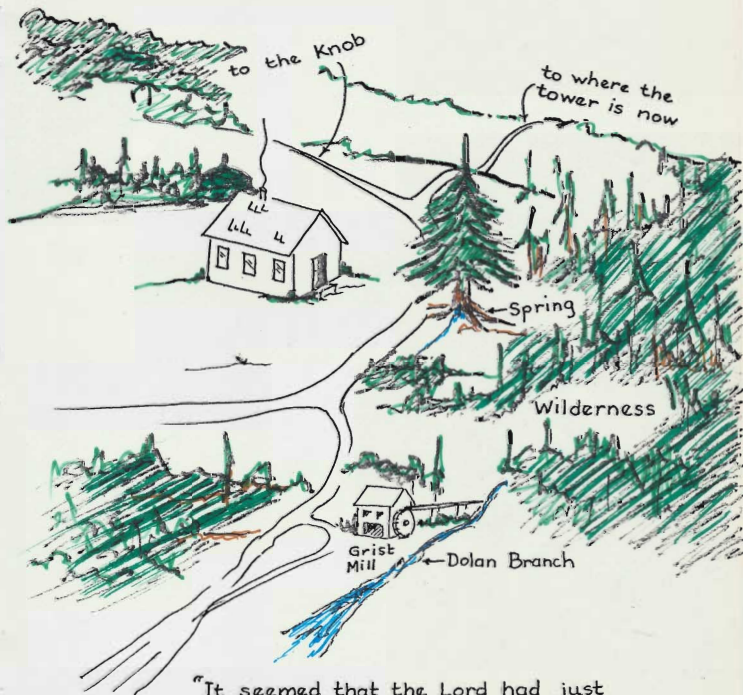 to the Knob
to where the
tower is now
Spring
Wilderness
Grist
Mill
Dolan Branch
"It seemed that the Lord had just